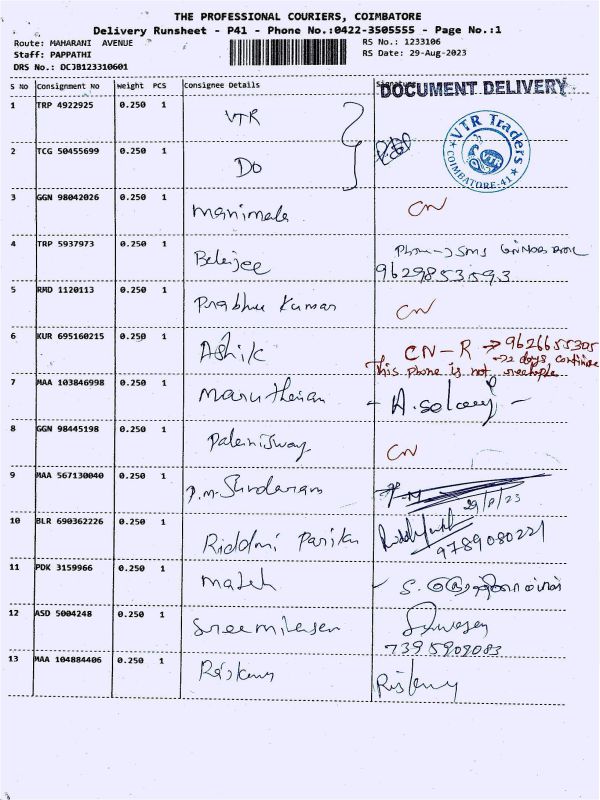 THE PROFESSIONAL COURIERS, COIMBATORE
Delivery Runsheet - P41 - Phone No.:0422-3505555 - Page No.:1
Route: MAHARANI AVENUE
RS No.: 1233106
Staff: PAPPATHI
RS Date: 29-Aug-2023
DRS No.: DCJB123310601
S No Consignment No Weight PCS Consignee Details Signature
DOCUMENT DELIVERY
1 TRP 4922925 0.250 1 VTR
VTR Traders
COIMBATORE-41
VTR
2 TCG 50455699 0.250 1 Do
3 GGN 98042026 0.250 1 Manimala CN
4 TRP 5937973 0.250 1 Balajee Phone sms
9629853593
5 RMD 1120113 0.250 1 Prabhu Kumar CN
6 KUR 695160215 0.250 1 Ashik CN-R → 9626655305
→ 2 days continue
This phone is not reachable
7 MAA 103846998 0.250 1
8 GGN 98445198 0.250 1 CN
9 MAA 567130040 0.250 1 P.M. Sundaram
29/8/23
10 BLR 690362226 0.250 1
9789080221
11 PDK 3159966 0.250 1
12 ASD 5004248 0.250 1
7395909083
13 MAA 104884406 0.250 1